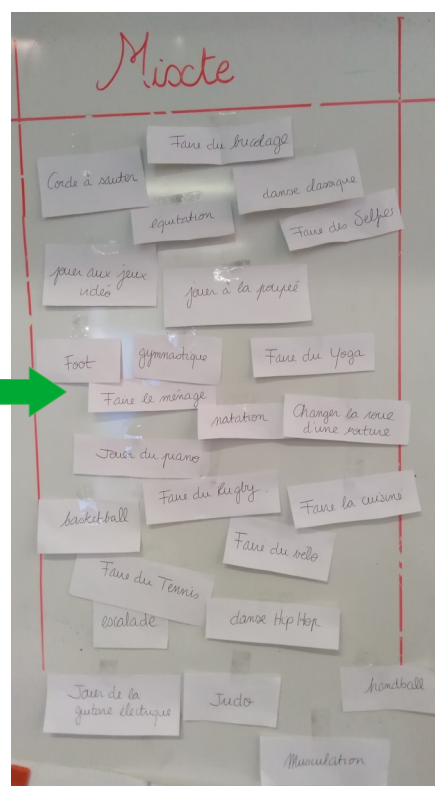 Mixte
Faire du bricolage
Corde à sauter
danse classique
equitation
Faire des Selfies
jouer aux jeux
vidéo
jouer à la poupée
Foot
gymnastique
Faire du Yoga
Faire le ménage
natation
Changer la roue
d'une voiture
Jouer du piano
Faire du Rugby.
Faire la cuisine
basket-ball
Faire du vélo
Faire du Tennis
escalade
danse Hip Hop
Jouer de la
guitare électrique
Judo
handball
Musculation